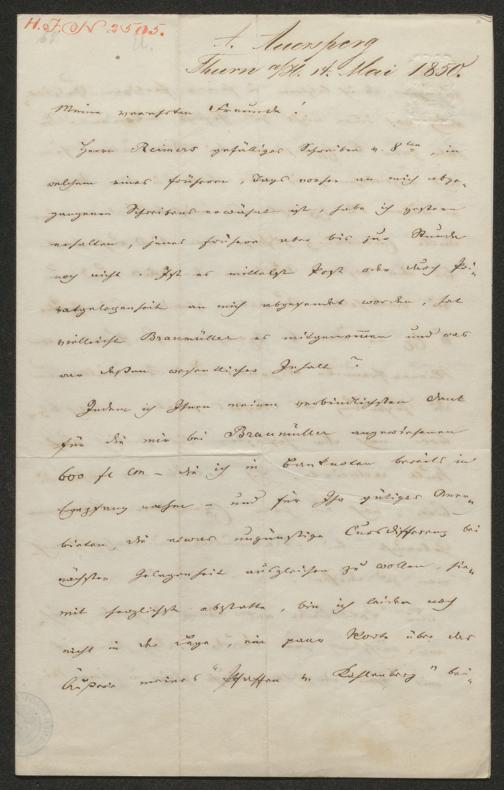 H. I. N 2505.
A. Auersperg
Thurn a/H. 14. Mai 1850.
Meine verehrten Freunde!
Herrn Reimers gefälliges Schreiben v. 8ten, in
welchem eines früheren, Tags vorher an mich abge-
gangenen Schreibens erwähnt ist, habe ich gestern
erhalten, jenes frühere aber bis zur Stunde
noch nicht. Ist es mittelst Post oder durch Pri-
vatgelegenheit an mich abgesendet worden, hat
vielleicht Braumüller es mitgenommen und was
war dessen wesentlicher Inhalt?
Indem ich Ihnen meinen verbindlichsten Dank
für die mir bei Braumüller angewiesenen
600 fl CM – die ich in Banknoten bereits in
Empfang nahm – und für Ihr gütiges Aner-
bieten, die etwas ungünstige Cursdifferenz bei
nächster Gelegenheit ausgleichen zu wollen, hie-
mit herzlichst abstatte, bin ich leider noch
nicht in der Lage, ein paar Worte über das
Äußere meines "Pfaffen v. Kahlenberg" bei-